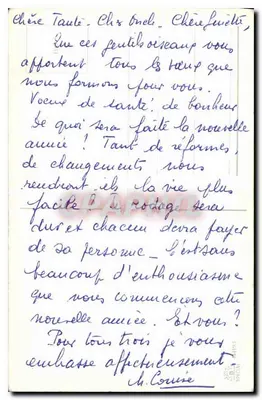 Chère Tante - Cher Oncle - Chère Ginette,
Que ces gentils oiseaux vous
apportent tous les vœux que
nous formons pour vous.
Vœux de santé, de bonheur
De quoi sera faite la nouvelle
année ? Tant de réformes,
de changements nous
rendront-ils la vie plus
facile ? le rodage sera
dur et chacun devra payer
de sa personne - C'est sans
beaucoup d'enthousiasme
que nous commençons cette
nouvelle année. Et vous ?
Pour tous trois je vous
embrasse affectueusement
M. Louise